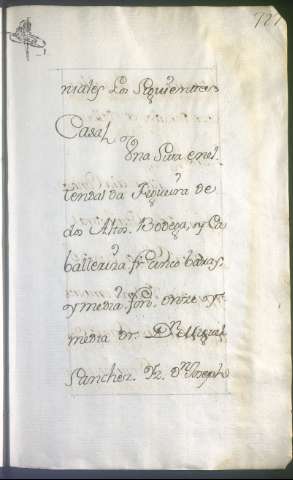 727
niales los siguientes
Casa
Una sita en el
tendal da Figueira de
dos Altos. Bodega, y Ca
balleriza fr. cinco baras
y media fon.
media dr. Dn Miguel
Sanchez. Yz. Dn Joseph